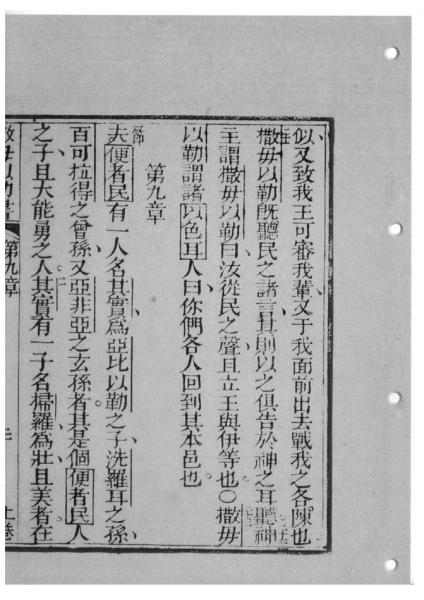 似又致我王可審我輩又于我面前出去戰我之各陳也
撒毋以勒既聽民之諸言其則以之俱告於神之耳聽神
主謂撒毋以勒曰汝從民之聲且立王與伊等也○撒毋
以勒謂諸以色耳人曰你們各人回到其本邑也
第九章
節
夫便者民有一人名其實為亞比以勒之子洗羅耳之孫
百可拉得之曾孫又亞非亞之玄孫者其是個便者民人
之子且大能勇之人其實有一子名掃羅為壯且美者在
第九章